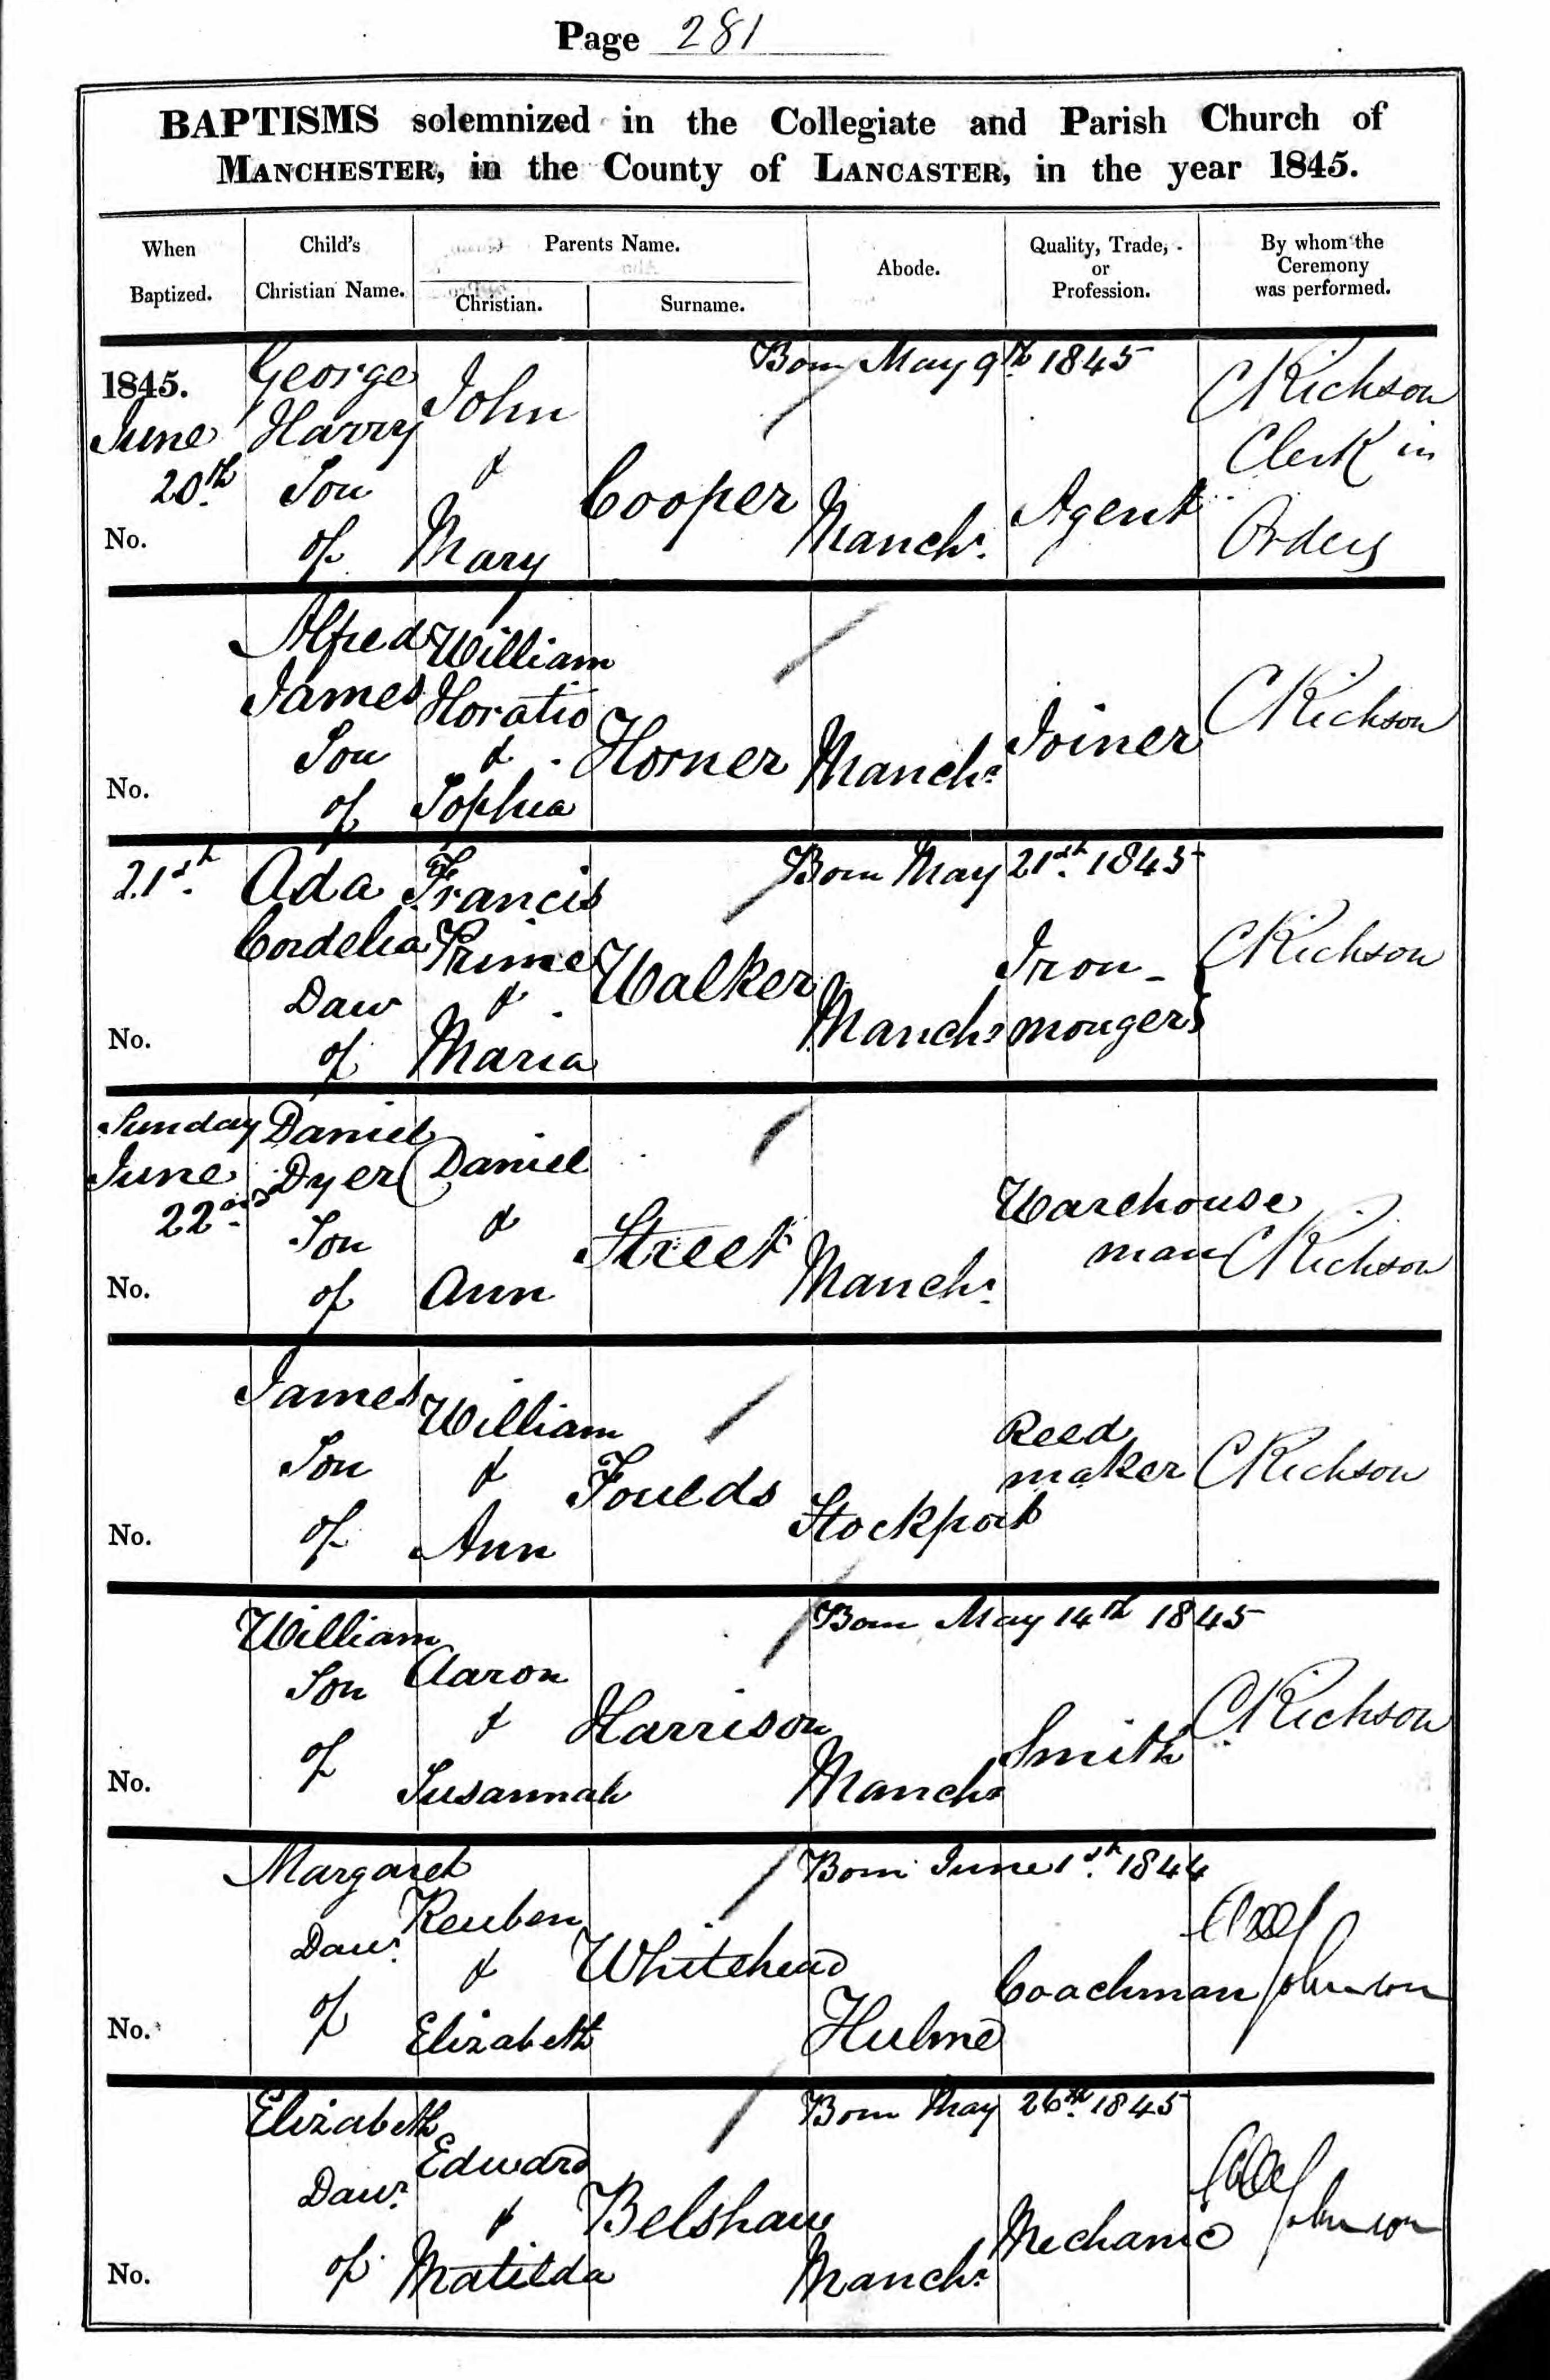 Page 281
BAPTISMS solemnized in the Collegiate and Parish Church of
MANCHESTER, in the County of LANCASTER, in the year 1845.
When
Baptized.
Child's
Christian Name.
Parents Name.
Christian.
Surname.
Abode.
Quality, Trade,
or
Profession.
By whom the
Ceremony
was performed.
1845.
June
20th
No.
George
Harry
Son
of
John
&
Mary
Cooper
Born May 9th 1845
Manchr.
Agent
CRichson
Clerk in
Orders
No.
Alfred
James
Son
of
William
Horatio
&
Sophia
Horner
Manchr
Joiner
CRichson
21st
No.
Ada
Cordelia
Daur
of
Francis
Prime
&
Maria
Walker
Born May 21st 1845
Manchr
Iron-
monger
CRichson
Sunday
June
22nd
No.
Daniel
Dyer
Son
of
Daniel
&
Ann
Street
Manchr.
Warehouse
man
CRichson
No.
James
Son
of
William
&
Ann
Foulds
Stockport
Reed
maker
CRichson
No.
William
Son
of
Aaron
&
Susannah
Harrison
Born May 14th 1845
Manchr
Smith
CRichson
No.
Margaret
Daur.
of
Reuben
&
Elizabeth
Whitehead
Born June 1st 1844
Hulme
Coachman
Johnson
No.
Elizabeth
Daur.
of
Edward
&
Matilda
Belshaw
Born May 26th 1845
Manchr.
Mechanic
Johnson